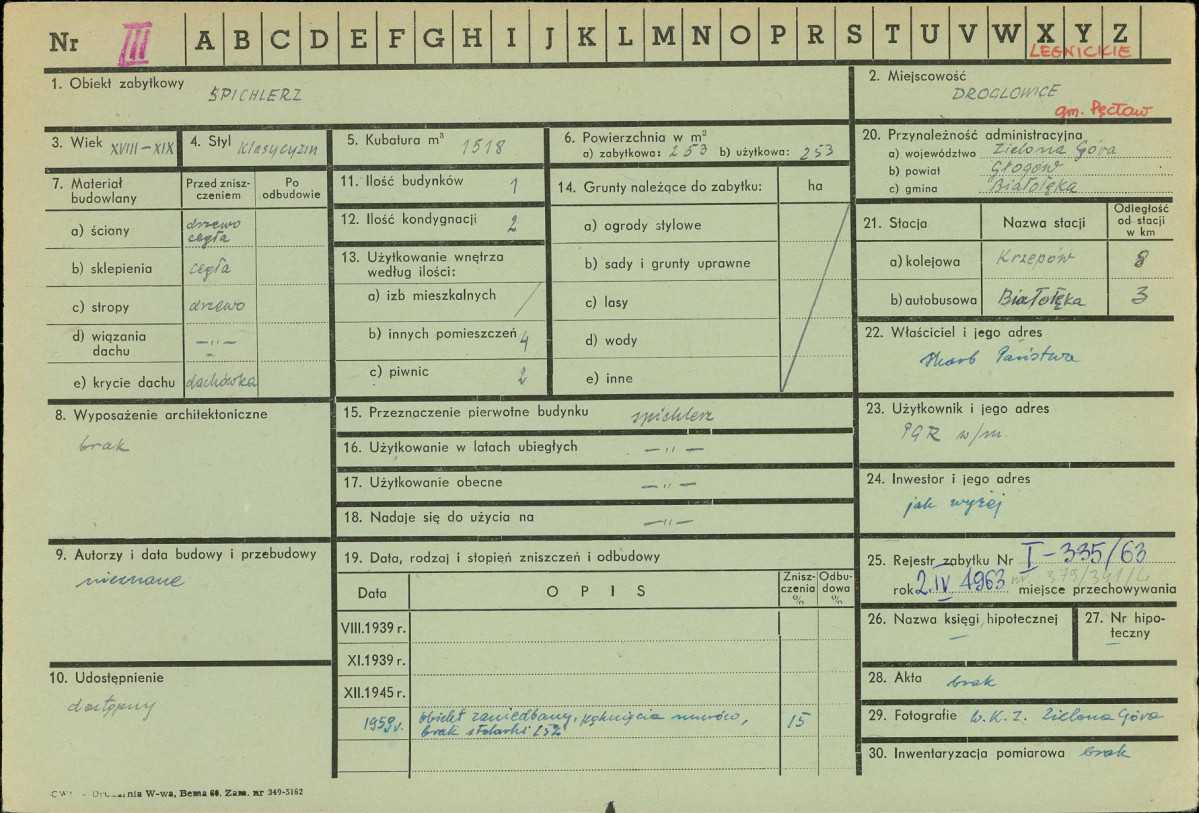 Nr III A B C D E F G H I J K L M N O P R S T U V W X Y Z
LEGNICKIE
1. Obiekt zabytkowy
SPICHLERZ
2. Miejscowość
DROGLOWICE
gm. Pęcław
3. Wiek XVIII–XIX
4. Styl Klasycyzm
5. Kubatura m³ 1518
6. Powierzchnia w m²
a) zabytkowa: 253 b) użytkowa: 253
7. Materiał budowlany
Przed zniszczeniem
Po odbudowie
a) ściany drzewo cegła
b) sklepienia cegła
c) stropy drzewo
d) wiązania dachu —„—
e) krycie dachu dachówka
8. Wyposażenie architektoniczne
brak
9. Autorzy i data budowy i przebudowy
nieznane
10. Udostępnienie
dostępny
11. Ilość budynków 1
12. Ilość kondygnacji 2
13. Użytkowanie wnętrza według ilości:
a) izb mieszkalnych /
b) innych pomieszczeń 4
c) piwnic 2
14. Grunty należące do zabytku: ha
a) ogrody stylowe
b) sady i grunty uprawne
c) lasy
d) wody
e) inne
15. Przeznaczenie pierwotne budynku spichlerz
16. Użytkowanie w latach ubiegłych —„—
17. Użytkowanie obecne —„—
18. Nadaje się do użycia na —„—
19. Data, rodzaj i stopień zniszczeń i odbudowy
Data OPIS Zniszczenia % Odbudowa %
VIII.1939 r.
XI.1939 r.
XII.1945 r.
1959 r. obiekt zaniedbany, pęknięcia murów, 15
brak stolarki
20. Przynależność administracyjna
a) województwo Zielona Góra
b) powiat Głogów
c) gmina Białołęka
21. Stacja Nazwa stacji Odległość od stacji w km
a) kolejowa Krzepów 8
b) autobusowa Białołęka 3
22. Właściciel i jego adres
Skarb Państwa
23. Użytkownik i jego adres
PGR w/m.
24. Inwestor i jego adres
jak wyżej
25. Rejestr zabytku Nr I-335/63
rok 2.IV 1963 nr 379/341/L miejsce przechowywania
26. Nazwa księgi hipotecznej
—
27. Nr hipoteczny
—
28. Akta brak
29. Fotografie W.K.Z. Zielona Góra
30. Inwentaryzacja pomiarowa brak
Drukarnia W-wa, Bema 60. Zam. nr 349-5162